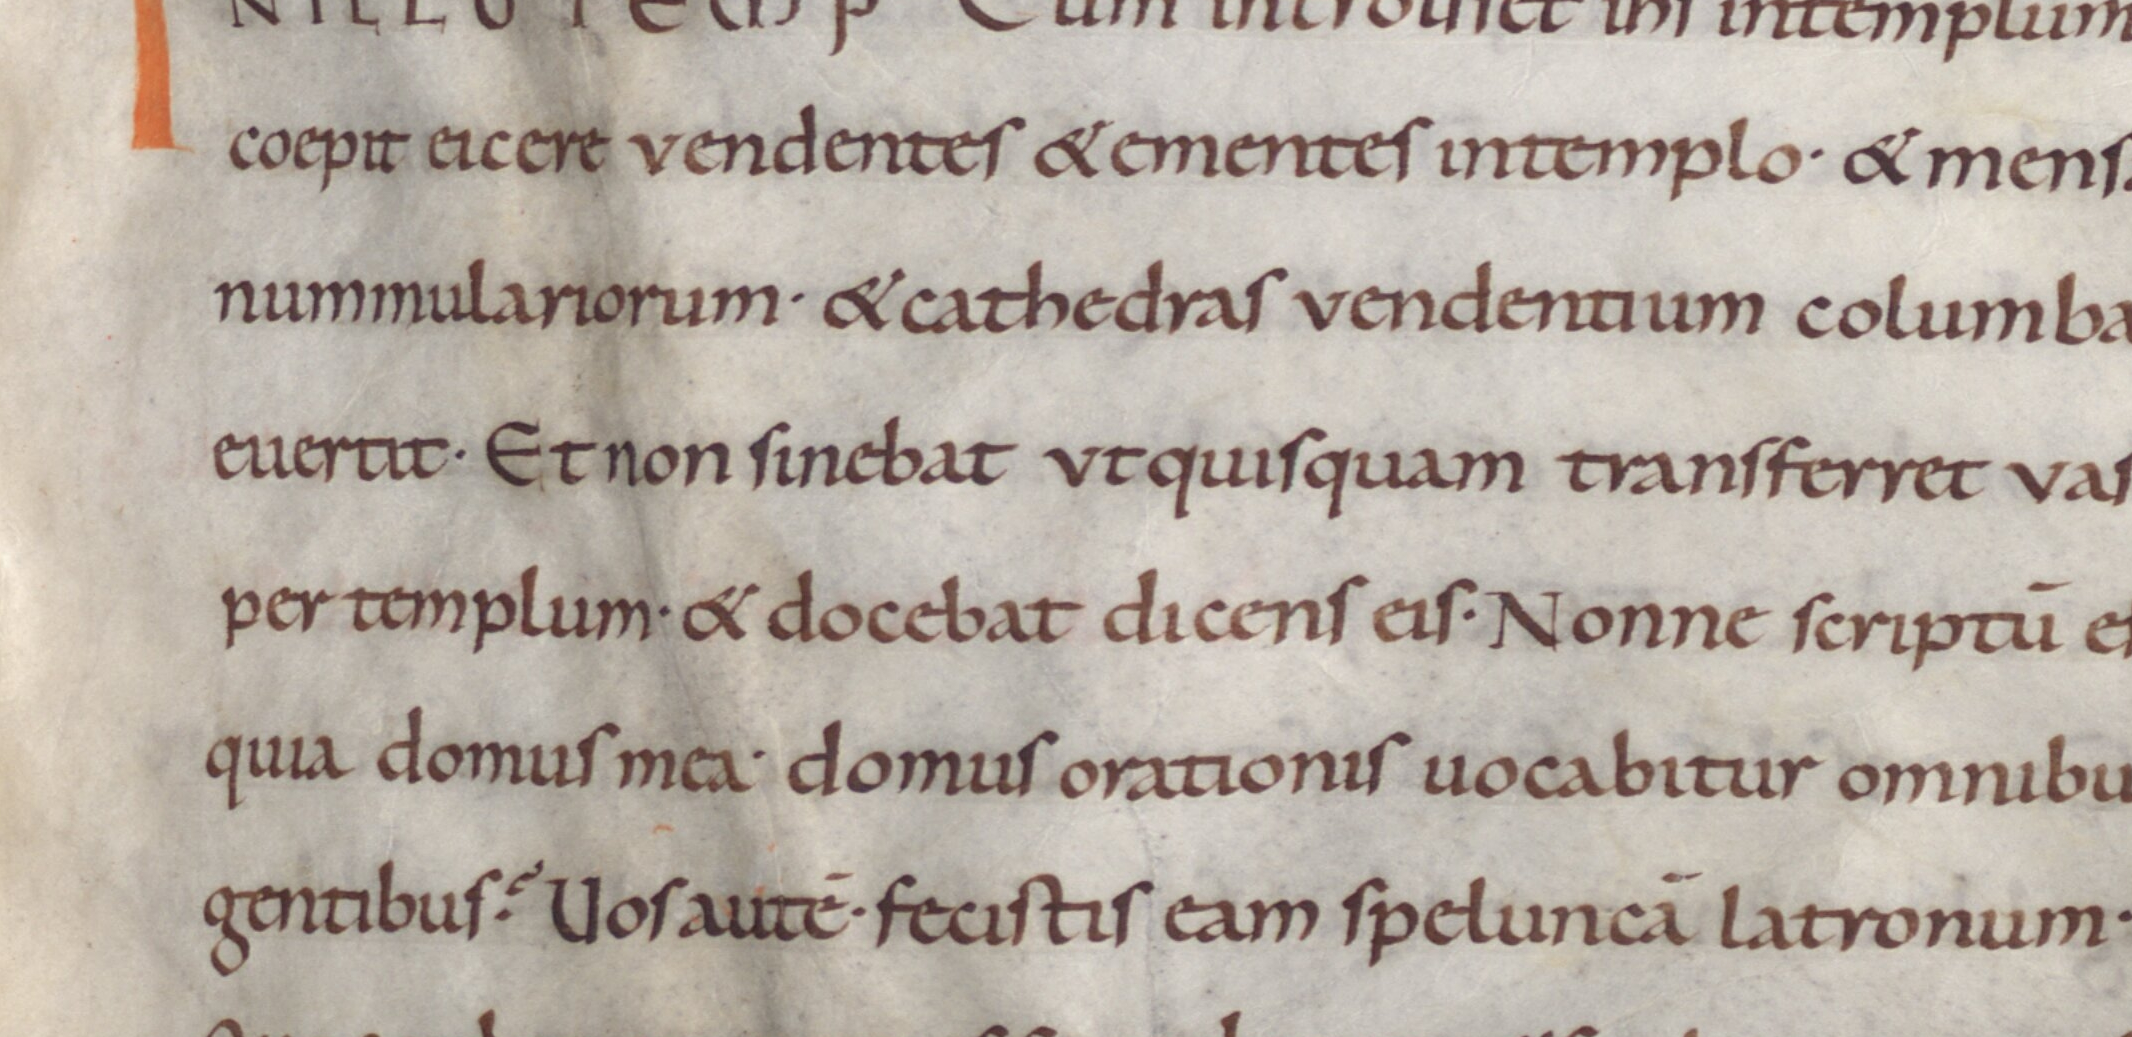 IN ILLO TEMP Cum introisset ihs intemplum
coepit eicere vendentes & ementes intemplo· & mens
nummulariorum· & cathedras vendentium columba
euertit· Et non sinebat vt quisquam transferret vas
per templum· & docebat dicens eis· Nonne scriptū es
quia domus mea· domus orationis uocabitur omnibu
gentibus? Uos autē· fecistis eam speluncā latronum·